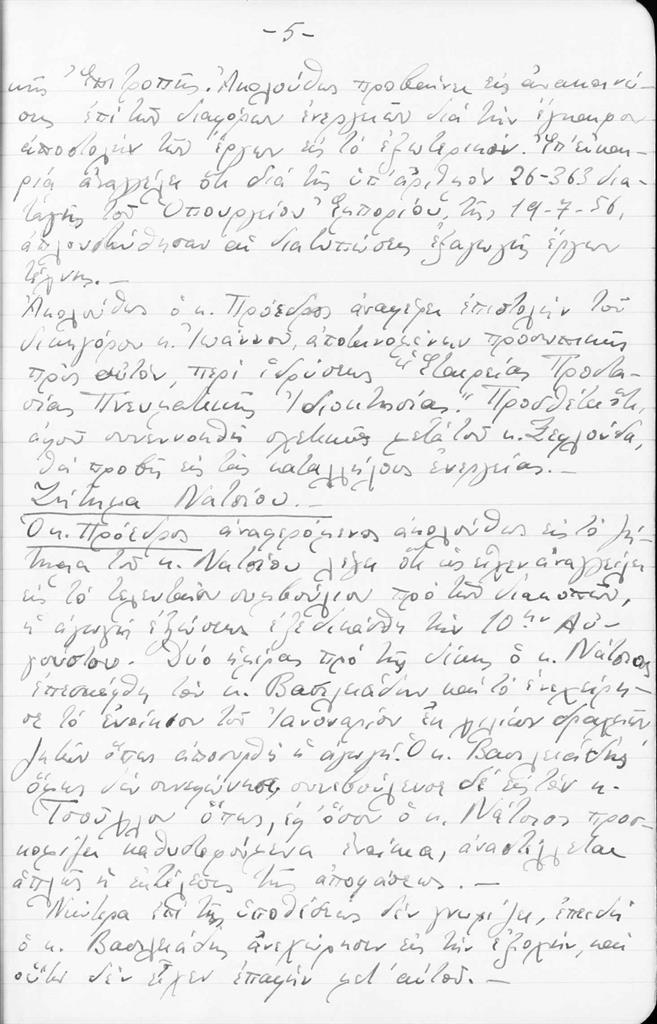 -5-
κῆς Ἐπιτροπῆς. Ἀκολούθως προβαίνει εἰς ἀνακοινώ-
σεις ἐπὶ τῶν διαφόρων ἐνεργειῶν διὰ τὴν ἔγκαιρον
ἀποστολὴν τῶν ἔργων εἰς τὸ ἐξωτερικόν. Ἐπ' εὐκαι-
ρίᾳ ἀναγγέλει ὅτι διὰ τῆς ὑπ' ἀριθμὸν 26-363 δια-
ταγῆς τοῦ Ὑπουργείου Ἐμπορίου, τῆς 19-7-56,
ἁπλουστεύθησαν αἱ διατυπώσεις ἐξαγωγῆς ἔργων
τέχνης.-
Ἀκολούθως ὁ κ. Πρόεδρος ἀναφέρει ἐπιστολὴν τοῦ
δικηγόρου κ. Ἰωάννου, ἀποτεινομένην προσωπικῶς
πρὸς αὐτόν, περὶ ἱδρύσεως "Ἑταιρείας Προστα-
σίας Πνευματικῆς Ἰδιοκτησίας." Προσθέτει ὅτι,
ἀφοῦ συνεννοηθῇ σχετικῶς μετὰ τοῦ κ.
θὰ προβῇ εἰς τὰς καταλλήλους ἐνεργείας.-
Ζήτημα Νάτσιου.-
Ὁ κ. Πρόεδρος ἀναφερόμενος ἀκολούθως εἰς τὸ ζή-
τημα τοῦ κ. Νατσίου λέγει ὅτι ὡς εἶχεν ἀναγγείλει
εἰς τὸ τελευταῖον συμβούλιον πρὸ τῶν διακοπῶν,
ἡ ἀγωγὴ ἐξώσεως ἐξεδικάσθη τὴν 10ην Αὐ-
γούστου. Δύο ἡμέρας πρὸ τῆς δίκης ὁ κ. Νάτσιος
ἐπεσκέφθη τὸν κ. Βασιλειάδην καὶ τὸ ἐνεχείρη-
σε τὸ ἐνοίκιον τοῦ Ἰανουαρίου ἐκ χιλίων δραχμῶν
ζητῶν ὅπως ἀποσυρθῇ ἡ ἀγωγή. Ὁ κ. Βασιλειάδης
ὅμως δὲν συνεφώνησε, συνεβούλευσε δὲ εἰς τὸν κ.
ὅπως, ἐφ' ὅσον ὁ κ. Νάτσιος προσ-
κομίζει καθυστερούμενα ἐνοίκια, ἀναστέλλεται
ἁπλῶς ἡ ἐκτέλεσις τῆς ἀποφάσεως.-
Νεώτερα ἐπὶ τῆς ὑποθέσεως δὲν γνωρίζει, ἐπειδὴ
ὁ κ. Βασιλειάδης ἀνεχώρησεν εἰς τὴν ἐξοχήν, καὶ
οὕτω δὲν εἶχεν ἐπαφὴν μετ' αὐτοῦ.-